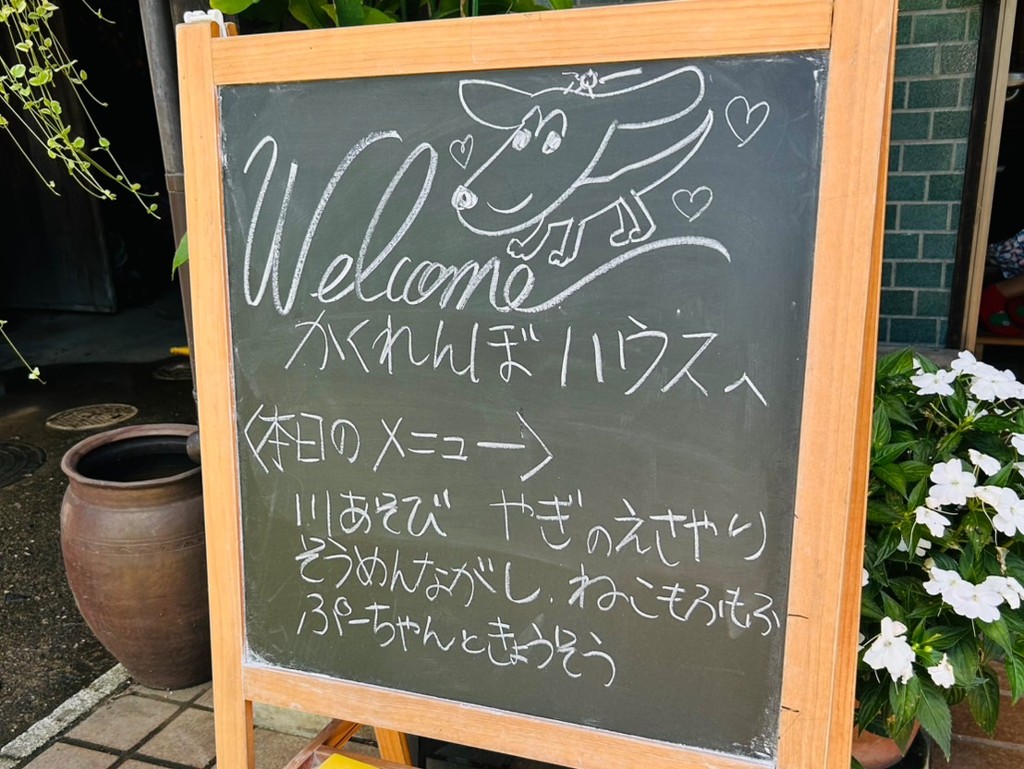 Welcome
かくれんぼハウスへ
〈本日のメニュー〉
川あそび やぎのえさやり
そうめんながし、ねこもふもふ
ぷーちゃんときょうそう